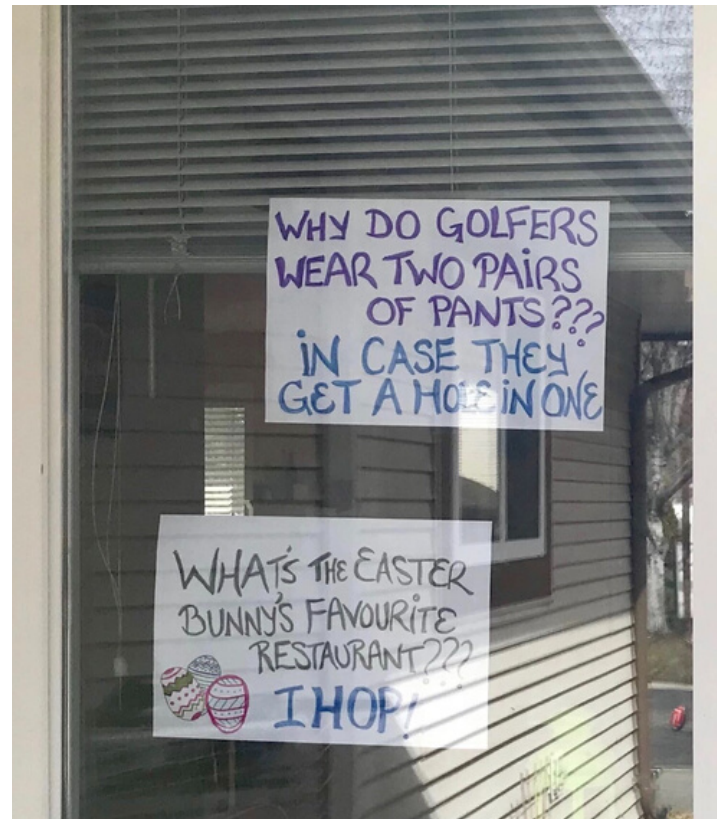 WHY DO GOLFERS
WEAR TWO PAIRS
OF PANTS???
IN CASE THEY
GET A HOLE IN ONE
WHAT'S THE EASTER
BUNNY'S FAVOURITE
RESTAURANT???
IHOP!